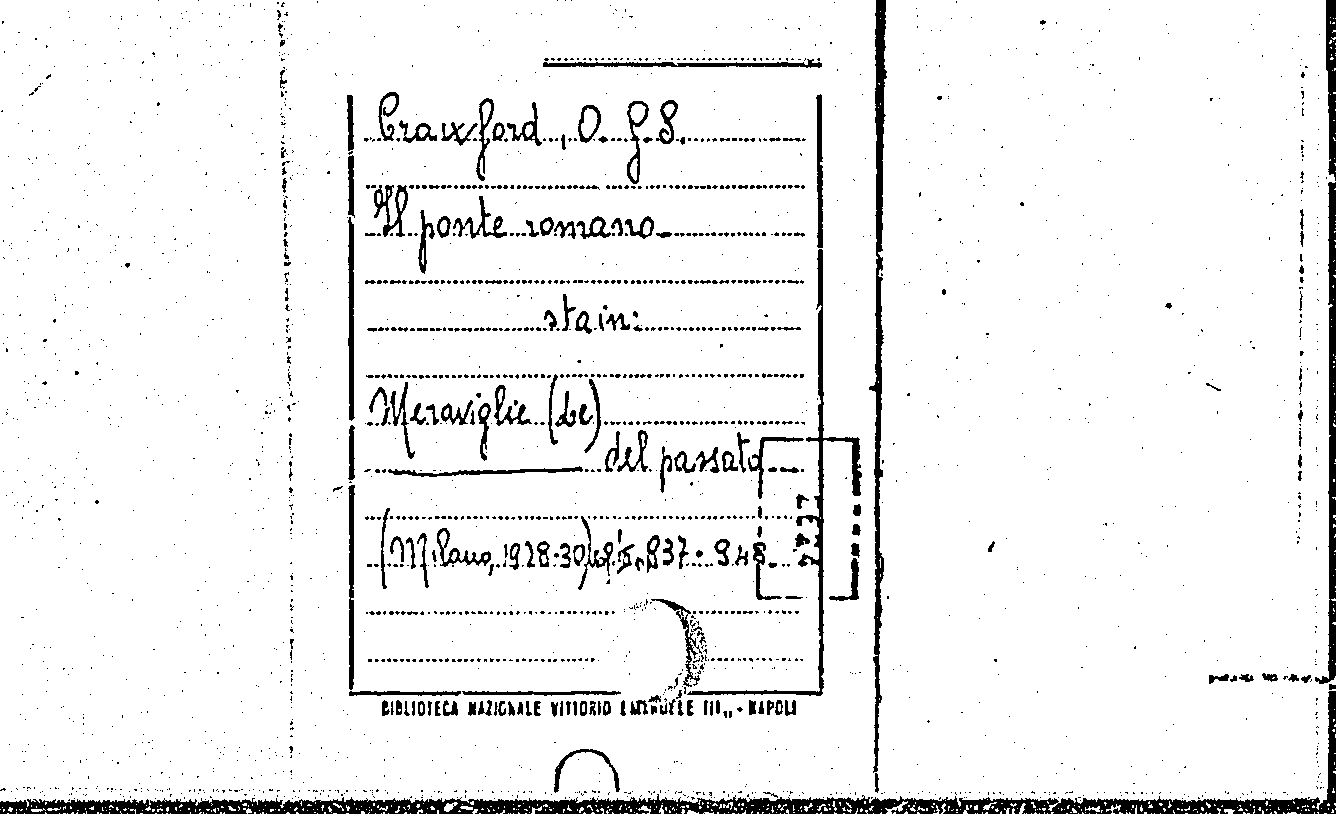 Crawford, O. G. S.
Il ponte romano.
sta in:
Meraviglie (Le)
del passato
(Milano, 1928-30) 937-948.
BIBLIOTECA NAZIONALE VITTORIO EMANUELE III,, - NAPOLI